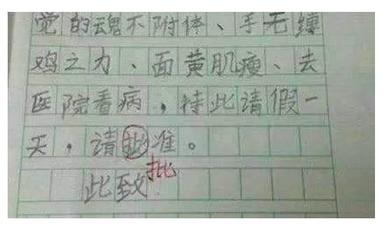 觉的魂不附体、手无缚
鸡之力、面黄肌瘦、去
医院看病，特此请假一
天，请批准。
此致
批